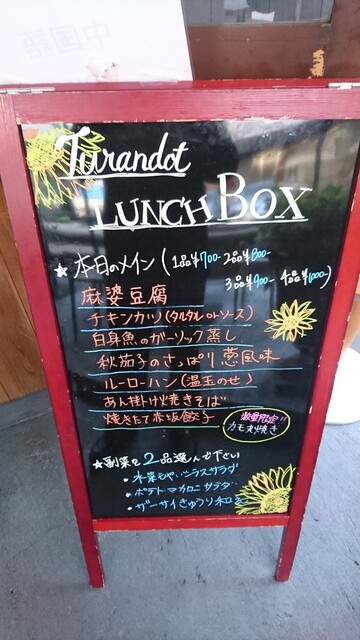 Turandot
LUNCH BOX
★本日のメイン(1品¥700-2品¥800-
3品¥900-4品¥1000-)
麻婆豆腐
チキンカツ(タルタルorソース)
白身魚のガーリック蒸し
秋茄子のさっぱり葱風味
ルーローハン(温玉のせ)
あん掛け焼きそば
焼きたて赤坂餃子
数量限定!!
カモ丸焼き
★副菜を2品選んで下さい
・水菜もやしシラスサラダ
・ポテトマカロニサラダ
・ザーサイきゅうり和え